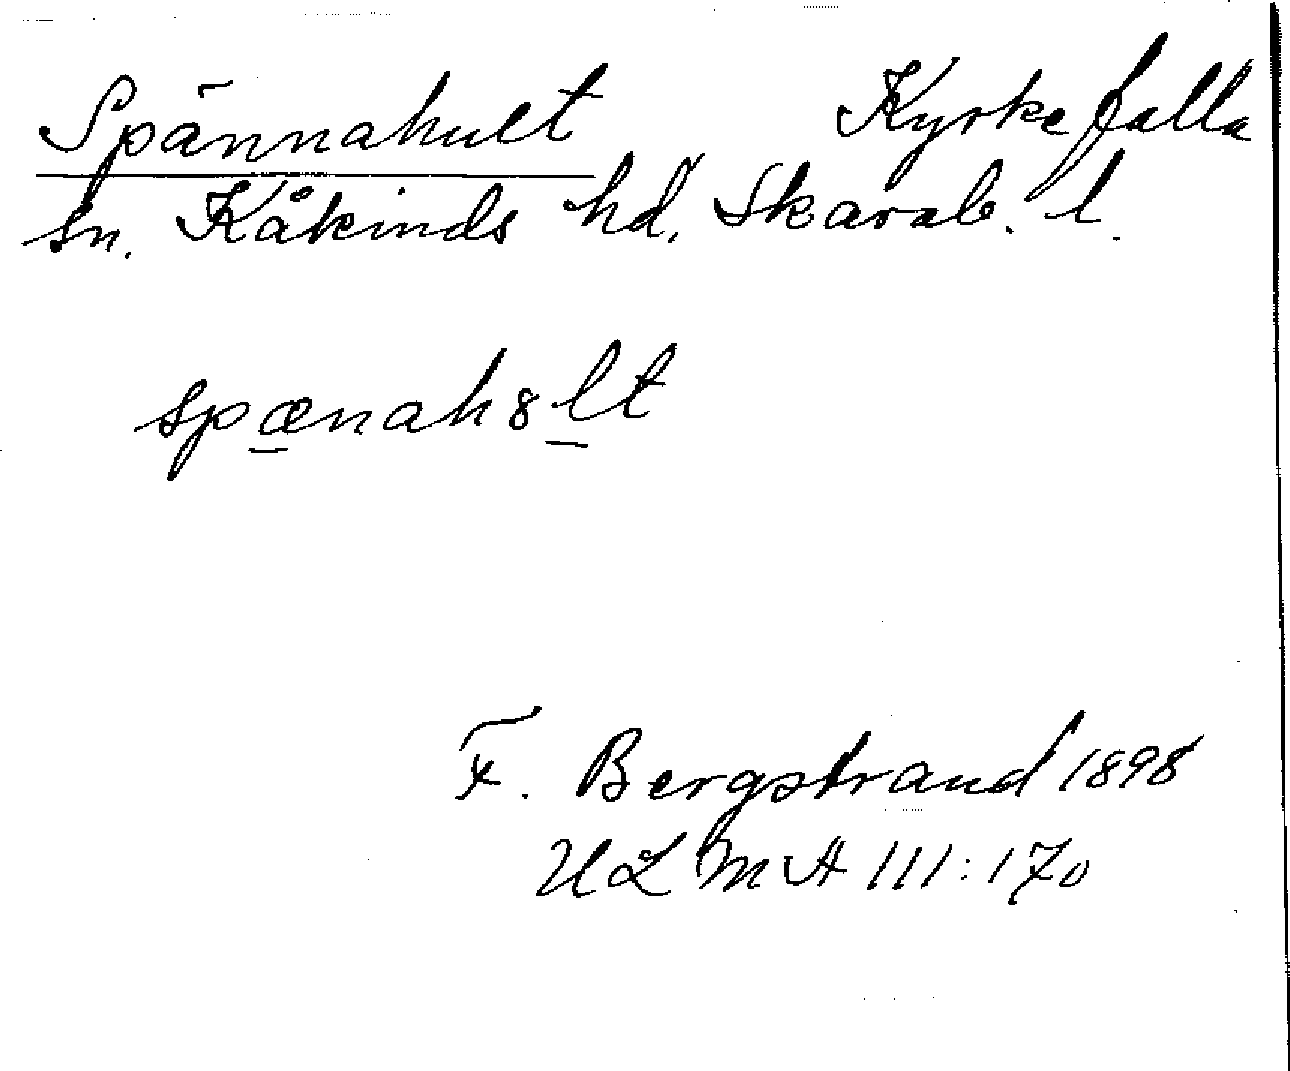 Spännahult Kyrkefalla
sn. Kåkinds hd, Skarab. l.
spænah8lt
F. Bergstrand 1898
ULMA 111:170